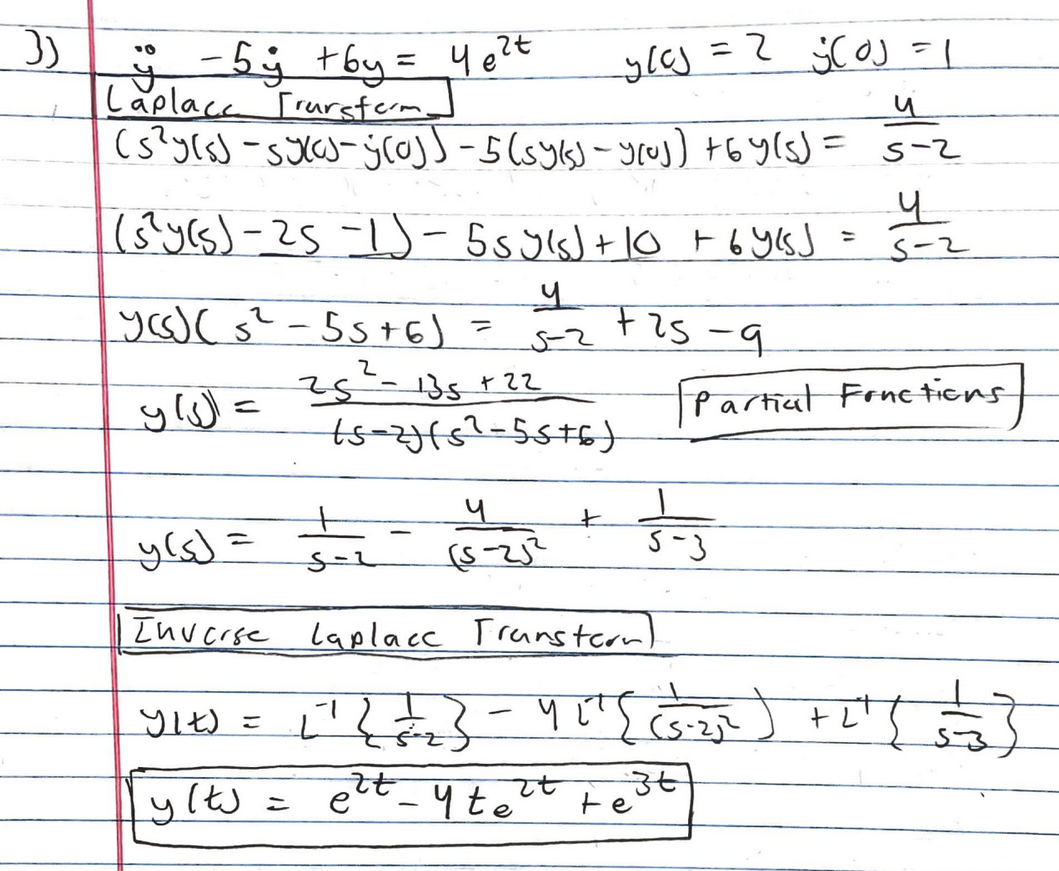 3) ÿ - 5ẏ + 6y = 4e^{2t} y(0) = 2 ẏ(0) = 1
Laplace Transform
(s²y(s) - sy(0) - ẏ(0)) - 5(sy(s) - y(0)) + 6y(s) = 4/(s-2)
(s²y(s) - 2s - 1) - 5sy(s) + 10 + 6y(s) = 4/(s-2)
y(s)(s² - 5s + 6) = 4/(s-2) + 2s - 9
y(s) = (2s² - 13s + 22)/((s-2)(s² - 5s + 6)) Partial Fractions
y(s) = 1/(s-2) - 4/(s-2)² + 1/(s-3)
Inverse Laplace Transform
y(t) = L⁻¹{1/(s-2)} - 4L⁻¹{1/(s-2)²} + L⁻¹{1/(s-3)}
y(t) = e^{2t} - 4te^{2t} + e^{3t}